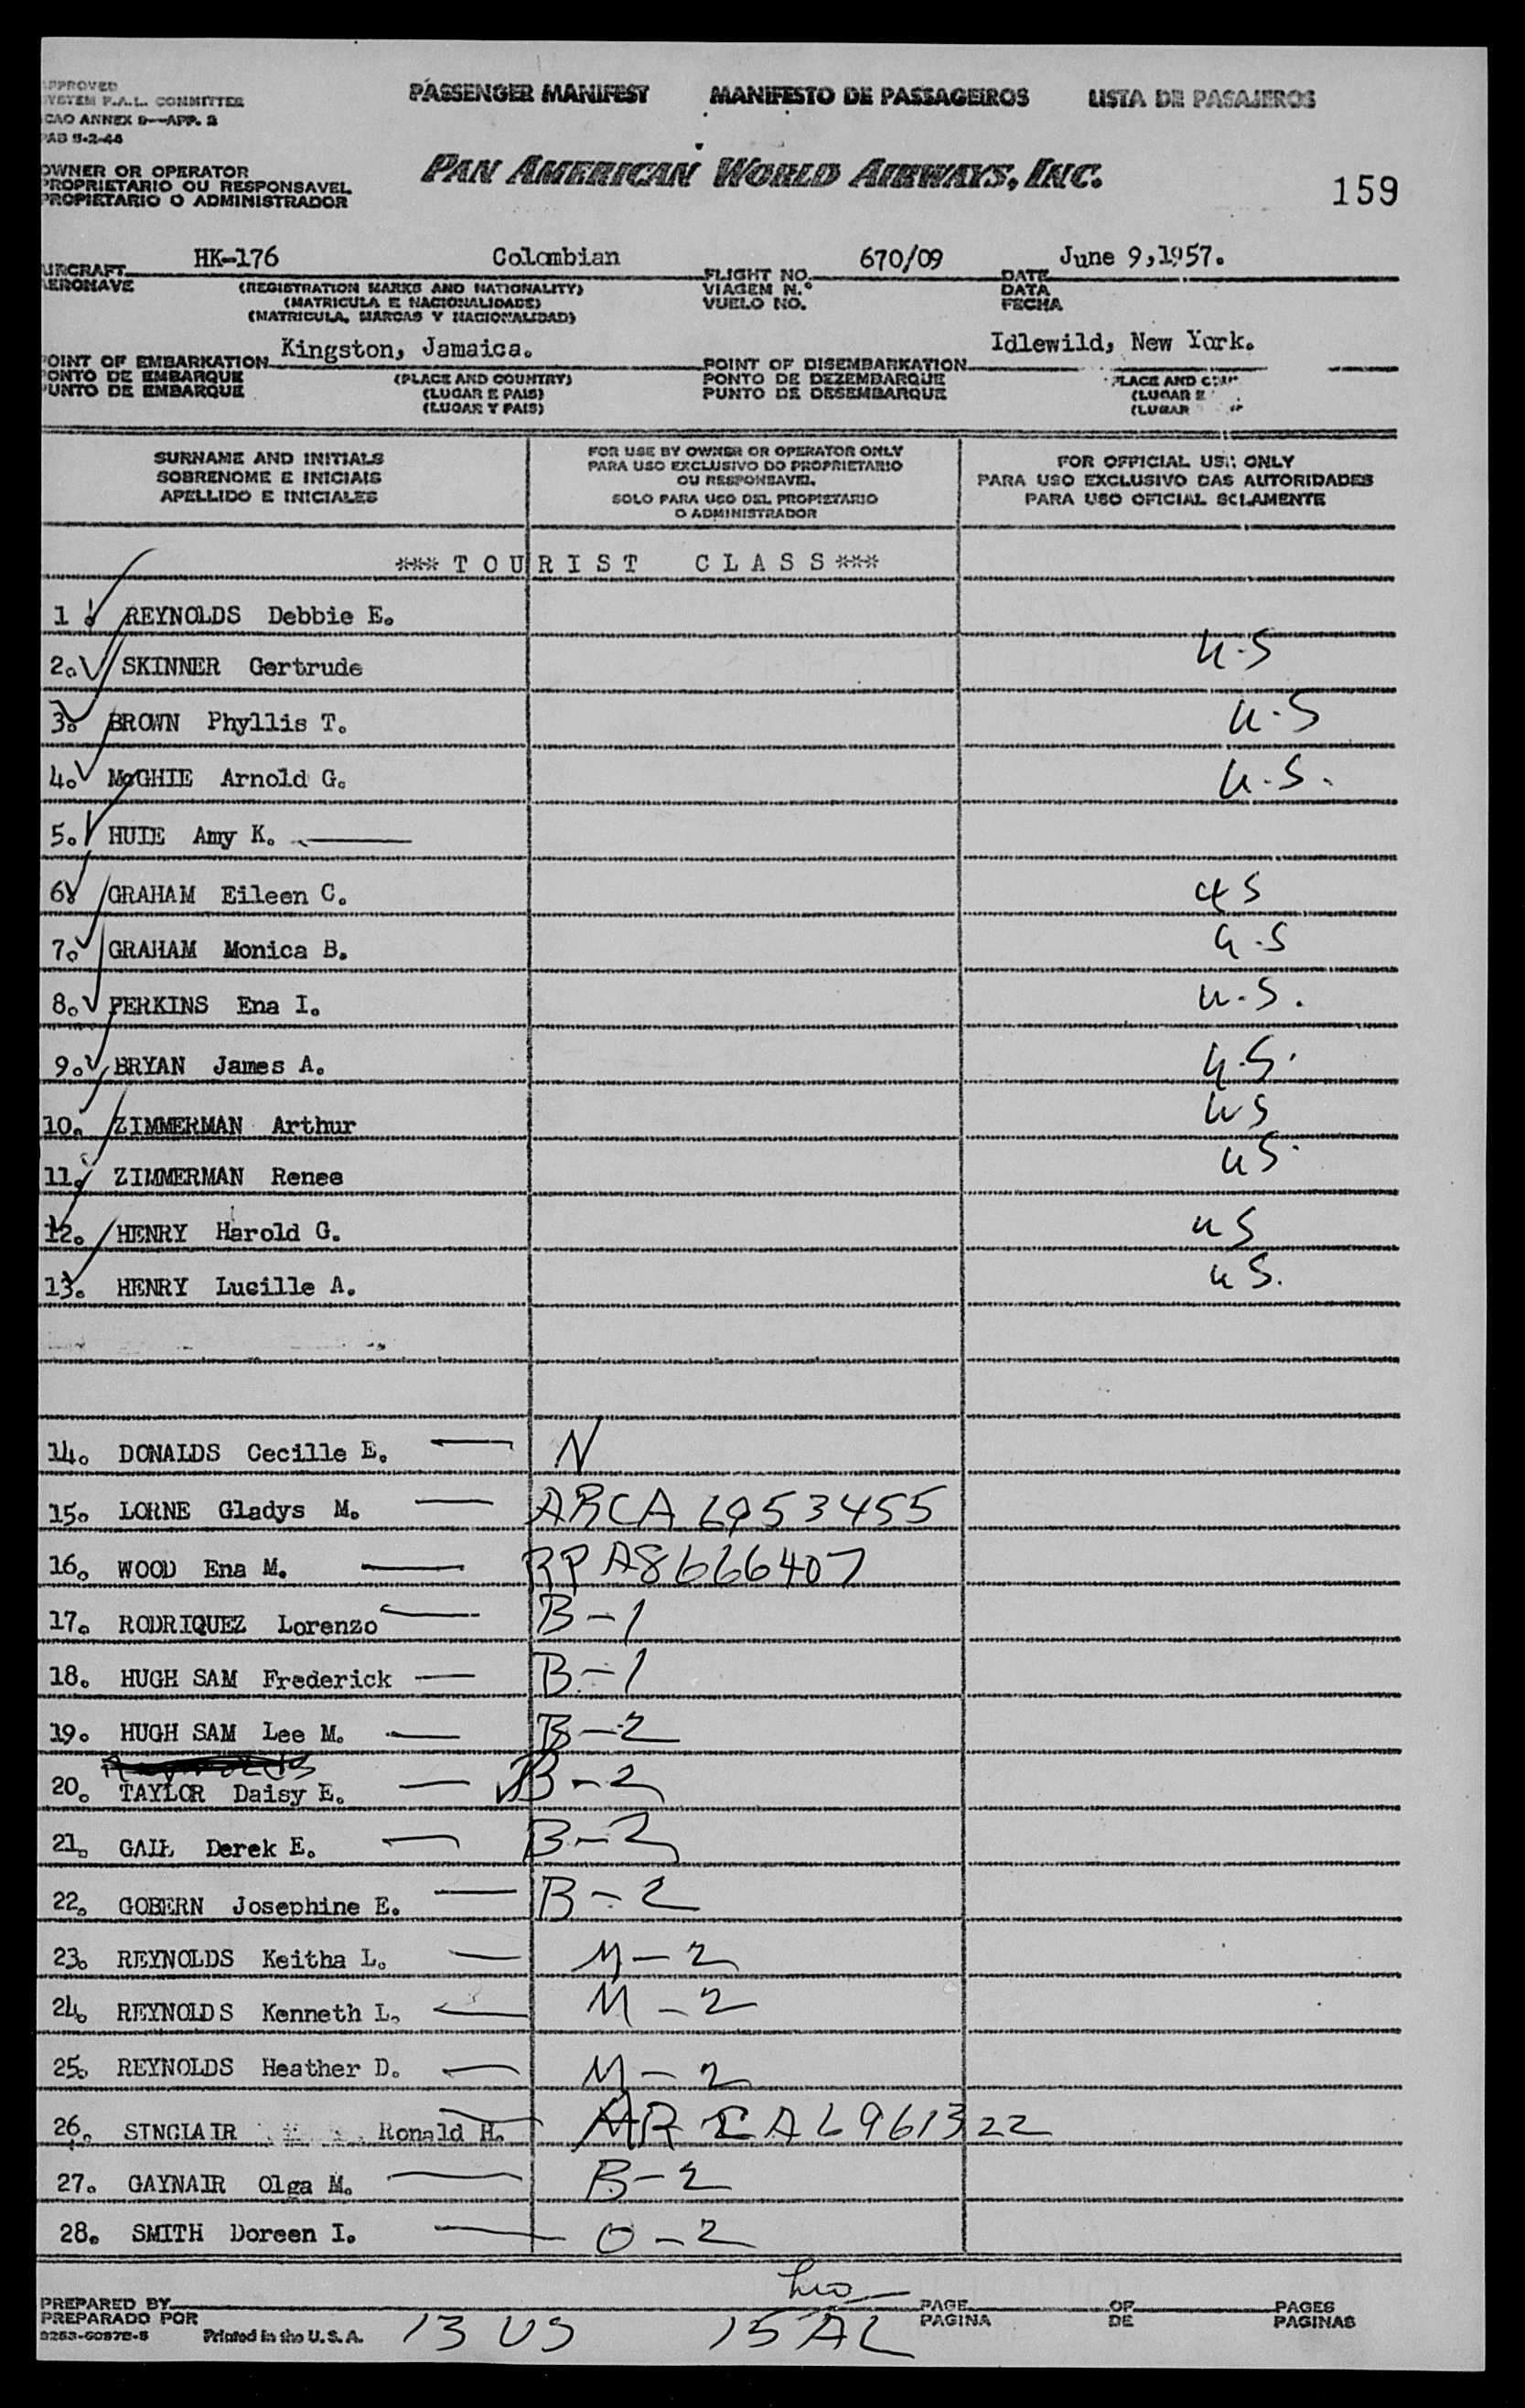 APPROVED
SYSTEM F.A.L. COMMITTEE
ICAO ANNEX 9—APP. 2
PASSENGER MANIFEST MANIFESTO DE PASSAGEIROS LISTA DE PASAJEROS
OWNER OR OPERATOR
PROPRIETARIO OU RESPONSAVEL
PROPIETARIO O ADMINISTRADOR
PAN AMERICAN WORLD AIRWAYS, INC.
159
AIRCRAFT HK-176 Colombian FLIGHT NO. 670/09 DATE June 9,1957.
AERONAVE (REGISTRATION MARKS AND NATIONALITY) VIAGEM N.º DATA
(MATRICULA E NACIONALIDADE) VUELO NO. FECHA
(MATRICULA, MARCAS Y NACIONALIDAD)
POINT OF EMBARKATION Kingston, Jamaica. POINT OF DISEMBARKATION Idlewild, New York.
PONTO DE EMBARQUE (PLACE AND COUNTRY) PONTO DE DEZEMBARQUE PLACE AND
PUNTO DE EMBARQUE (LUGAR E PAIS) PUNTO DE DESEMBARQUE (LUGAR E
(LUGAR Y PAIS) (LUGAR
SURNAME AND INITIALS
SOBRENOME E INICIAIS
APELLIDO E INICIALES
FOR USE BY OWNER OR OPERATOR ONLY
PARA USO EXCLUSIVO DO PROPRIETARIO
OU RESPONSAVEL
SOLO PARA USO DEL PROPIETARIO
O ADMINISTRADOR
FOR OFFICIAL USE ONLY
PARA USO EXCLUSIVO DAS AUTORIDADES
PARA USO OFICIAL SOLAMENTE
*** T O U R I S T C L A S S ***
1. REYNOLDS Debbie E.
2. SKINNER Gertrude U.S
3. BROWN Phyllis T. U.S
4. McGHIE Arnold G. U.S.
5. HUIE Amy K.
6. GRAHAM Eileen C. US
7. GRAHAM Monica B. U.S
8. PERKINS Ena I. U.S.
9. BRYAN James A. U.S.
10. ZIMMERMAN Arthur US
11. ZIMMERMAN Renee US.
12. HENRY Harold G. US
13. HENRY Lucille A. US.
14. DONALDS Cecille E. — N
15. LORNE Gladys M. — ARCA 6953455
16. WOOD Ena M. — RPA8666407
17. RODRIQUEZ Lorenzo — B-1
18. HUGH SAM Frederick — B-1
19. HUGH SAM Lee M. — B-2
20. TAYLOR Daisy E. — B-2
21. GAIL Derek E. — B-2
22. GOBERN Josephine E. — B-2
23. REYNOLDS Keitha L. — M-2
24. REYNOLDS Kenneth L. — M-2
25. REYNOLDS Heather D. — M-2
26. SINCLAIR Ronald H. — ARCA6961322
27. GAYNAIR Olga M. — B-2
28. SMITH Doreen I. — O-2
PREPARED BY PAGE OF PAGES
PREPARADO POR PAGINA DE PAGINAS
Printed in the U.S.A. 13 US 15 AL